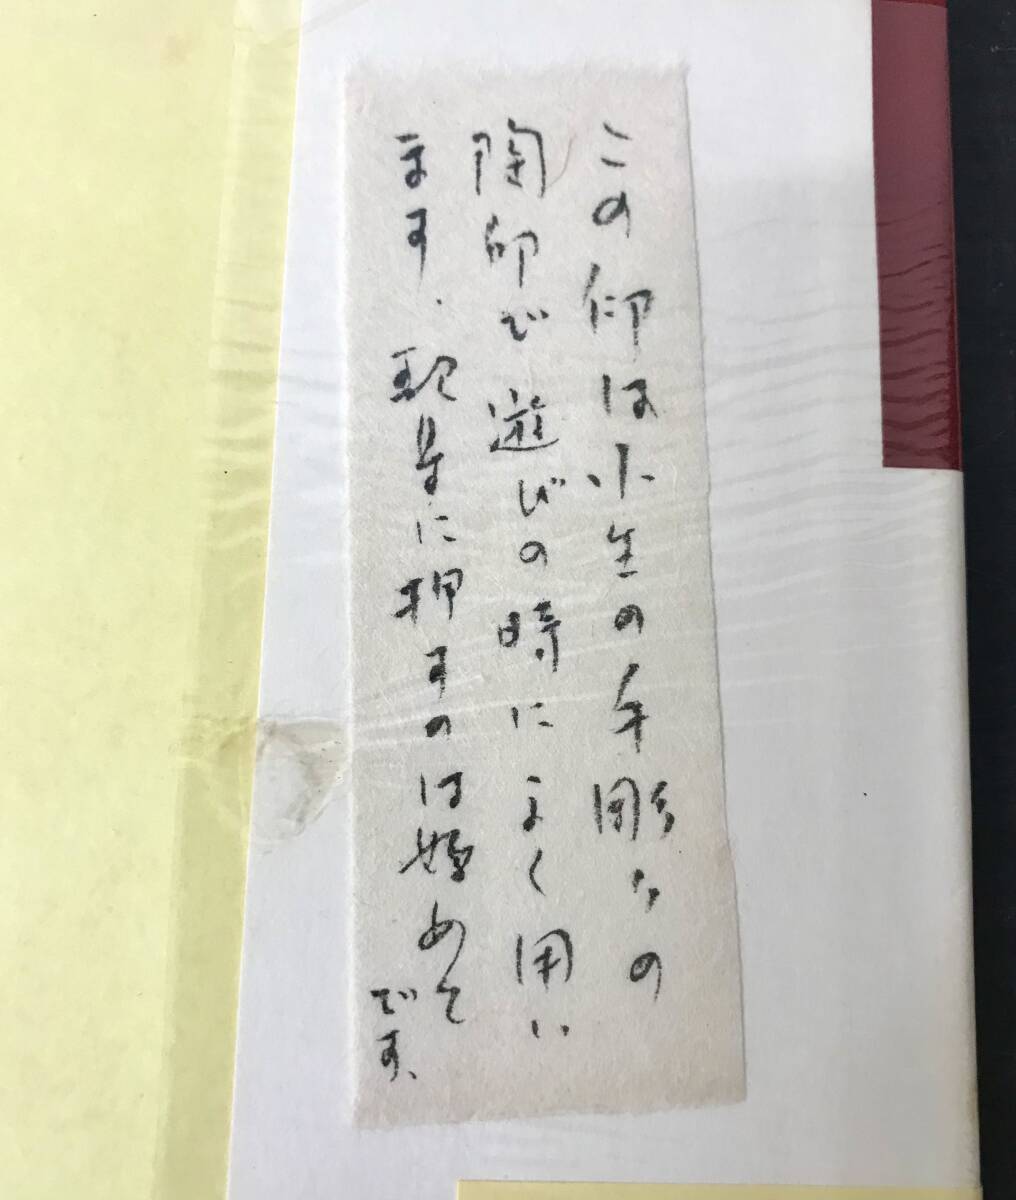 この印は小生の手彫りの
陶印で遊びの時によく用い
ます、に押すのは始めて
です、